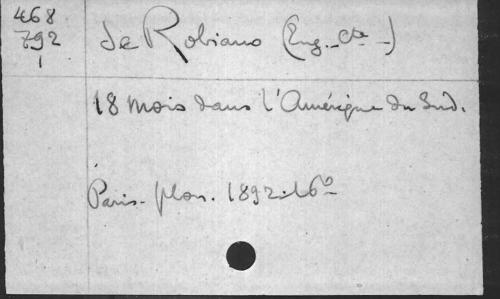 468
792
1
de Robiano (Eug. Cte -)
18 mois dans l'Amérique du Sud.
Paris - plon. 1892. 16º